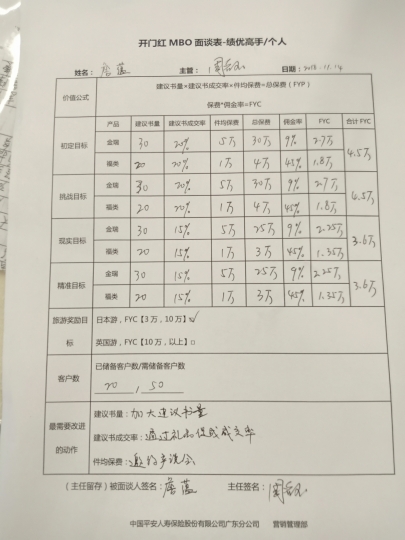 开门红 MBO 面谈表-绩优高手/个人
姓名： 詹蕴 主管： 日期：2018.11.14
价值公式 建议书量×建议书成交率×件均保费=总保费（FYP）
保费*佣金率=FYC
产品 建议书量 建议书成交率 件均保费 总保费 佣金率 FYC 合计 FYC
初定目标 金瑞 30 20% 5万 30万 9% 2.7万 4.5万
福类 20 20% 1万 4万 45% 1.8万
挑战目标 金瑞 30 20% 5万 30万 9% 2.7万 4.5万
福类 20 20% 1万 4万 45% 1.8万
现实目标 金瑞 30 15% 5万 25万 9% 2.25万 3.6万
福类 20 15% 1万 3万 45% 1.35万
精准目标 金瑞 30 15% 5万 25万 9% 2.25万 3.6万
福类 20 15% 1万 3万 45% 1.35万
旅游奖励目标 日本游，FYC【3万，10万】√
英国游，FYC【10万，以上】□
客户数 已储备客户数/需储备客户数
20 / 50
最需要改进的动作 建议书量：加大建议书量
建议书成交率：通过礼品促成成交率
件均保费：邀约产说会
（主任留存）被面谈人签名：詹蕴 主任签名：
中国平安人寿保险股份有限公司广东分公司 营销管理部